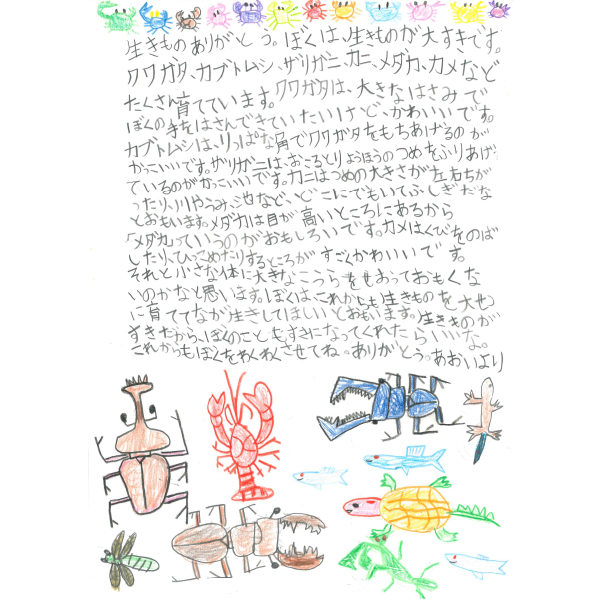 生きものありがとう。ぼくは、生きものが大すきです。
クワガタ、カブトムシ、ザリガニ、カニ、メダカ、カメなど
たくさん育てています。クワガタは、大きなはさみで
ぼくの手をはさんできていたいけど、かわいいです。
カブトムシは、りっぱな角でクワガタをもちあげるのが
かっこいいです。ザリガニは、おこるとりょうほうのつめをふりあげ
ているのがかっこいいです。カニはつめの大きさが左右ちが
ったり、川やうみ、池など、どこにでもいてふしぎだな
とおもいます。メダカは目が高いところにあるから
「メダカ」っていうのがおもしろいです。カメはくびをのば
したり、ひっこめたりするところがすごくかわいいです。
それと小さな体に大きなこうらをせおっておもくな
いのかなと思います。ぼくは、これからも生きものを大せつ
に育ててなが生きしてほしいとおもいます。生きものが
すきだから、ぼくのこともすきになってくれたらいいな。
これからもぼくをわくわくさせてね。ありがとう。あおいより